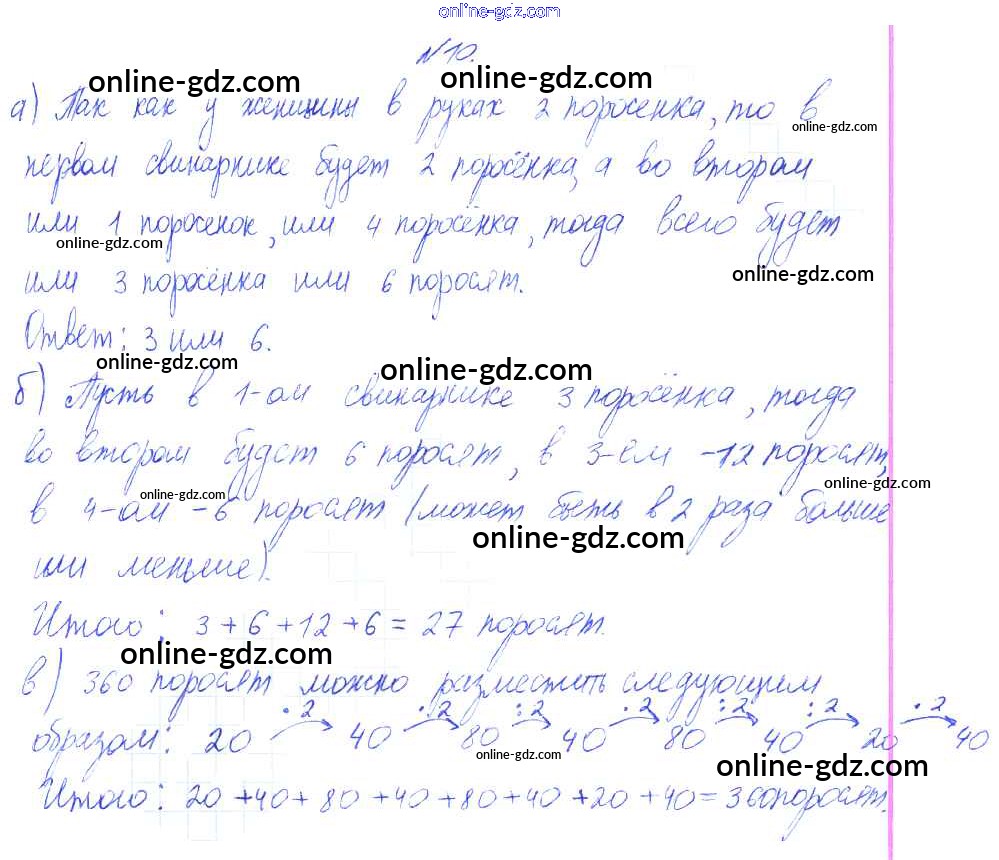 online-gdz.com
№10.
online-gdz.com online-gdz.com
а) Так как у женщины в руках 2 поросенка, то в
online-gdz.com
первом свинарнике будет 2 поросёнка, а во втором
или 1 поросенок, или 4 поросёнка, тогда всего будет
online-gdz.com
online-gdz.com
или 3 поросёнка или 6 поросят.
Ответ: 3 или 6.
online-gdz.com online-gdz.com
б) Пусть в 1-ом свинарнике 3 поросёнка, тогда
во втором будет 6 поросят, в 3-ем -12 поросят,
online-gdz.com online-gdz.com
в 4-ом -6 поросят (может быть в 2 раза больше
online-gdz.com
или меньше).
Итого: 3 + 6 + 12 + 6 = 27 поросят.
online-gdz.com
в) 360 поросят можно разместить следующим
·2 ·2 :2 ·2 :2 :2 ·2
образом: 20 40 80 40 80 40 20 40
online-gdz.com online-gdz.com
Итого: 20 + 40 + 80 + 40 + 80 + 40 + 20 + 40 = 360 поросят.